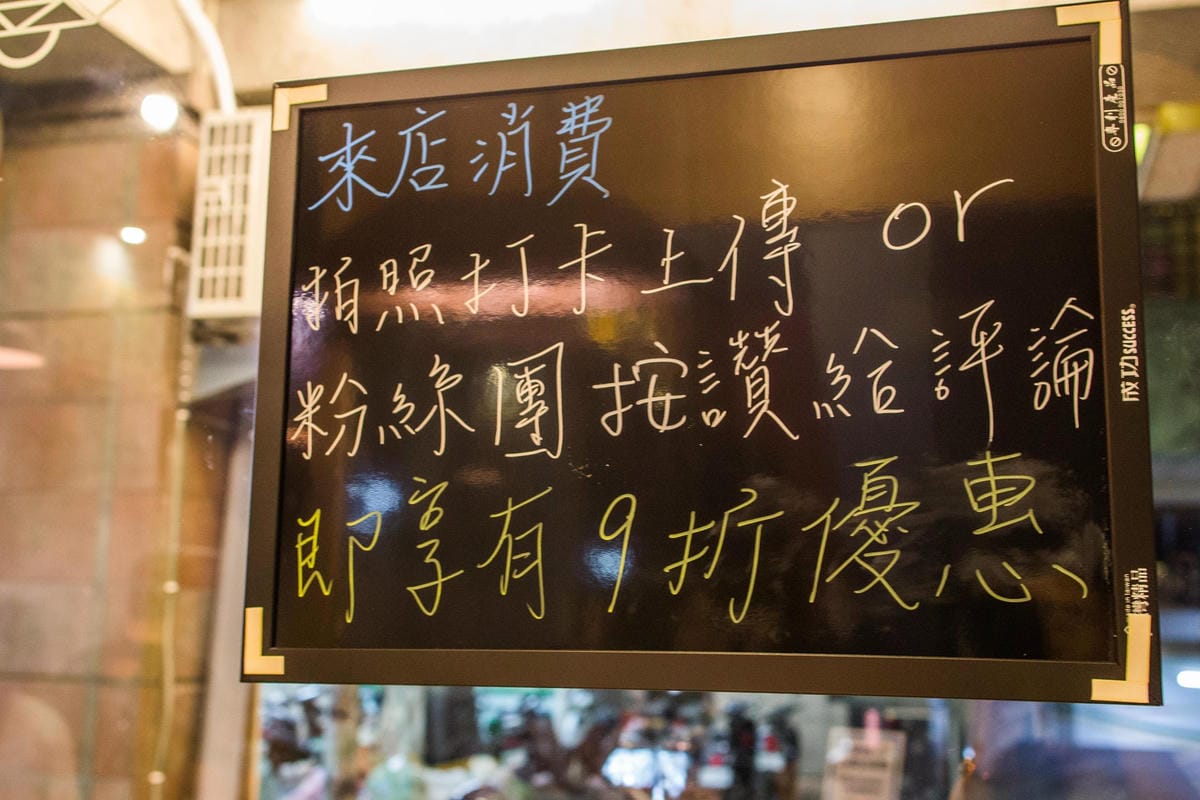 來店消費
拍照打卡上傳 or
粉絲團按讚給評論
即享有9折優惠
專利產品
成功SUCCESS®